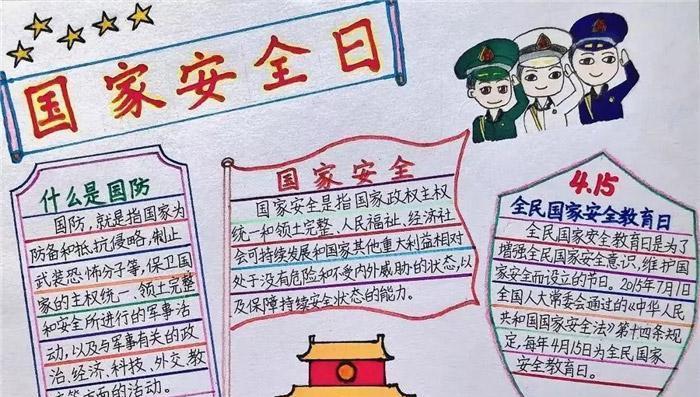 国家安全日
什么是国防
国防，就是指国家为
防备和抵抗侵略，制止
武装恐怖分子等，保卫国
家的主权统一、领土完整
和安全所进行的军事活
动，以及与军事有关的政
治、经济、科技、外交、教
育等方面的活动。
国家安全
国家安全是指国家政权主权
统一和领土完整、人民福祉、经济社
会可持续发展和国家其他重大利益相对
处于没有危险和不受内外威胁的状态，以
及保障持续安全状态的能力。
4.15
全民国家安全教育日
全民国家安全教育日是为了
增强全民国家安全意识，维护国
家安全而设立的节日。2015年7月1日
全国人大常委会通过的《中华人民
共和国国家安全法》第十四条规
定，每年4月15日为全民国家
安全教育日。